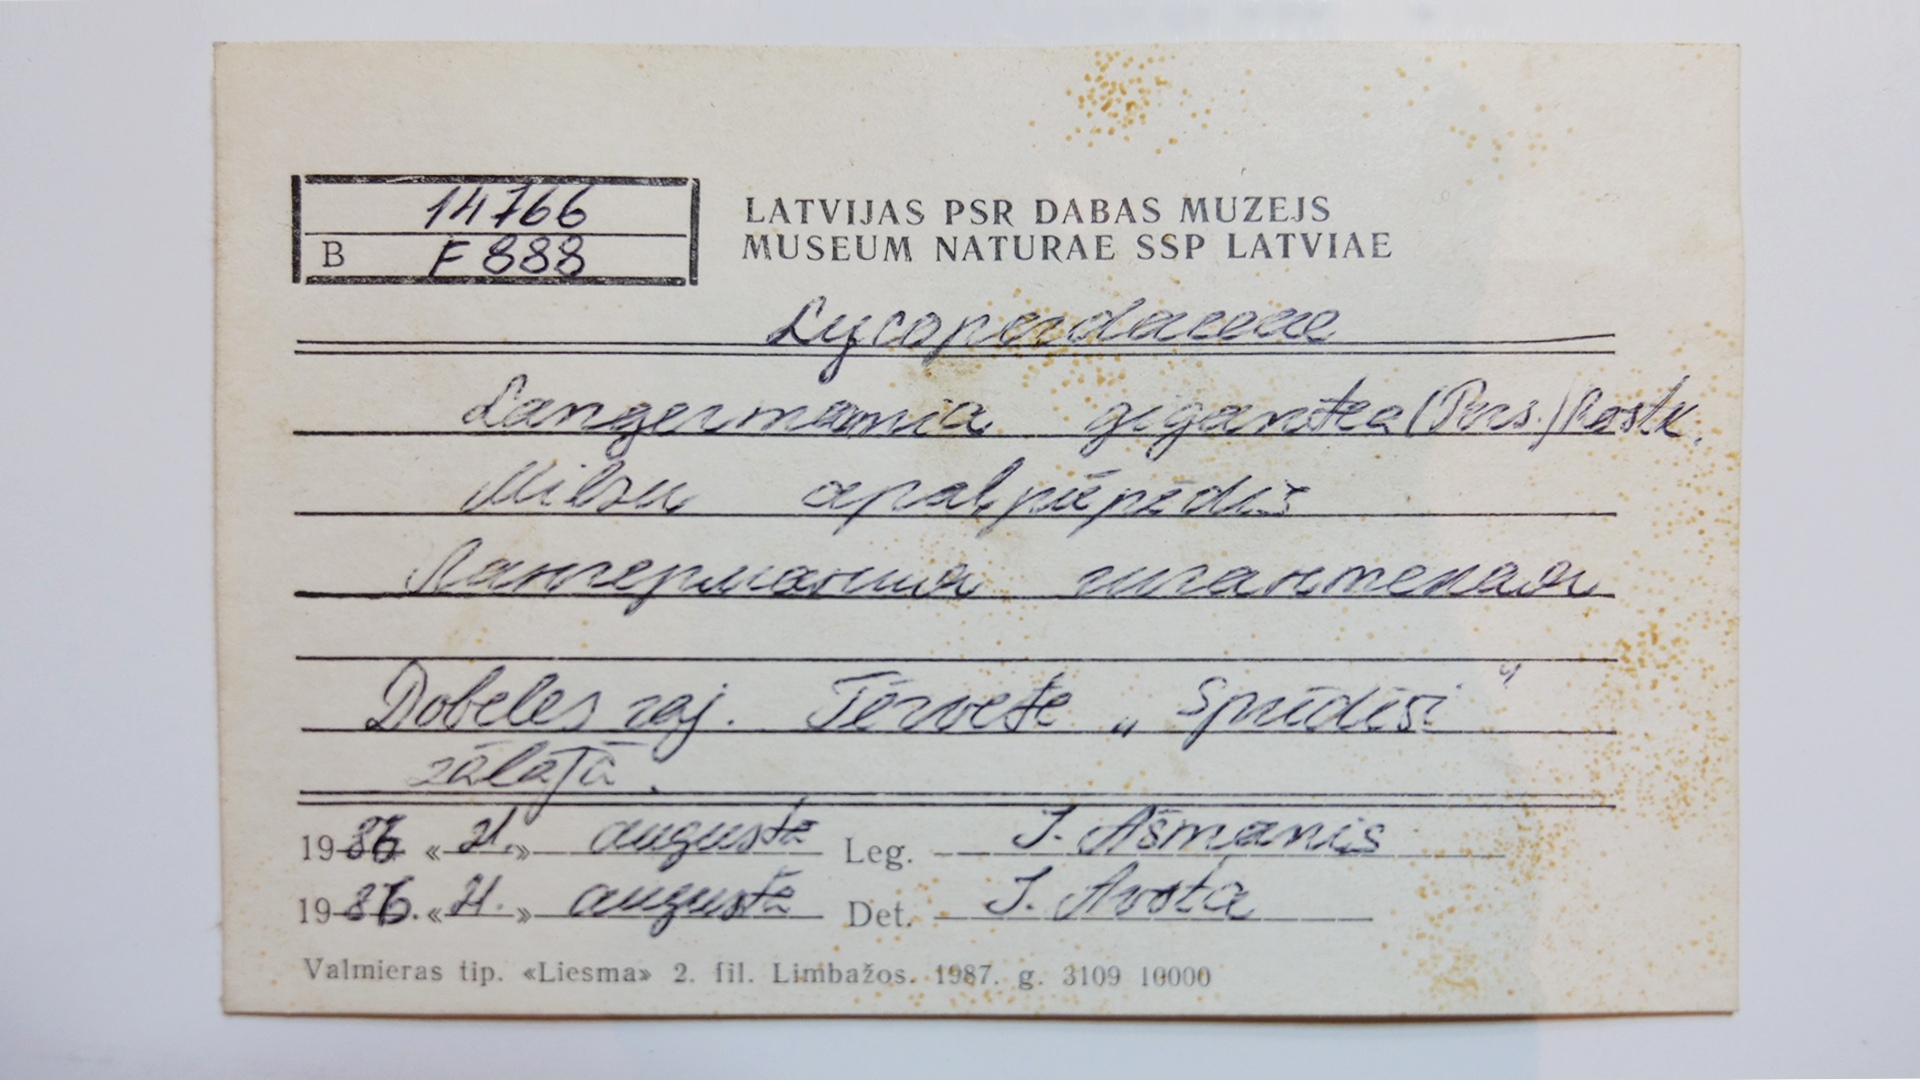 14766
B F 888
LATVIJAS PSR DABAS MUZEJS
MUSEUM NATURAE SSP LATVIAE
Lycoperdaceae
Langermania gigantea (Pers.) Rostk.
Milzu apaļpūpēdis
Лангермания гигантская
Dobeles raj. Tērvete „Sprīdīši"
zālājā.
1986 «21.» augustā Leg. J. Ašmanis
1986. «21.» augustā Det. I. Avota
Valmieras tip. «Liesma» 2. fil. Limbažos. 1987. g. 3109 10000